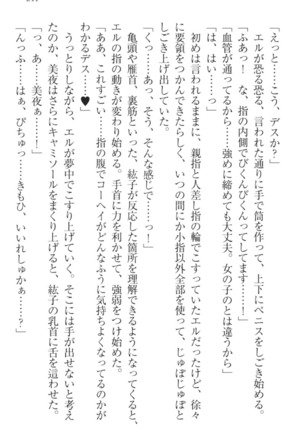 「……こう、デスか?」
エルが恐る恐る、言われた通りに手で筒を作って、上下にペニスをしごき始める。
「ふあっ！ な、指の内側でびくんびくんってしてます……！」
「血管が通ってるから……強めに締めても大丈夫。女の子のとは違うから」
「は、はい……っ」
初めは言われるままに、親指と人差し指の輪でこすっていたエルだったけど、徐々
に要領をつかんできたらしく、いつの間にか小指以外全部を使って、じゅぽじゅぽと
しごき上げ出していた。
「くっ……あっ、そう、そんな感じで……っ！」
亀頭や雁首、裏筋といった、紘子が反応した箇所を理解できるようになってくると、
エルの指の動きが変わり始める。手首に力を利かせて、強弱をつけ始めた。
「ああ、これすごい……指の腹でコーヘイがどんなふうに気持ちよくなってるのかが
わかるデス……♥」
うっとりしながら、エルが夢中でこすり上げていく。そこには手が出せないと考え
たのか、美夜はさらにキャミソールをまくり上げると、紘子の乳首に舌を這わせた。
「っ、あ……美夜……！」
「んっふ……はぁ、ぴちゅっ……きもひ、いいれしゅかぁ……？」